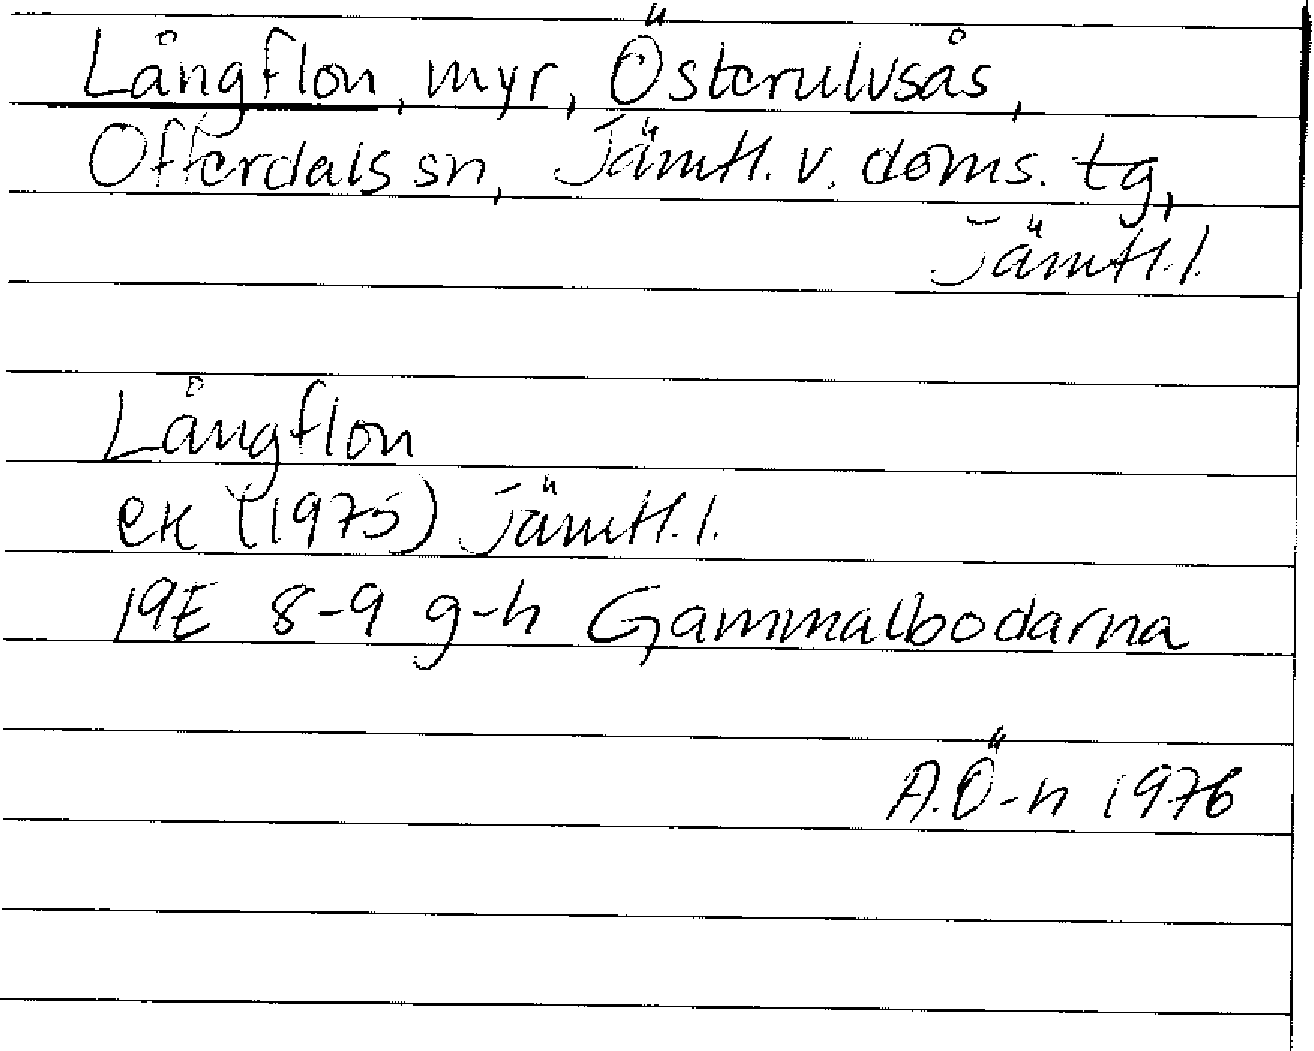 Långflon, myr, Österulvsås,
Offerdals sn, Jämtl. v. doms. tg,
Jämtl. l.
Långflon
ek (1975) Jämtl. l.
19E 8-9 g-h Gammalbodarna
A.Ö-n 1976